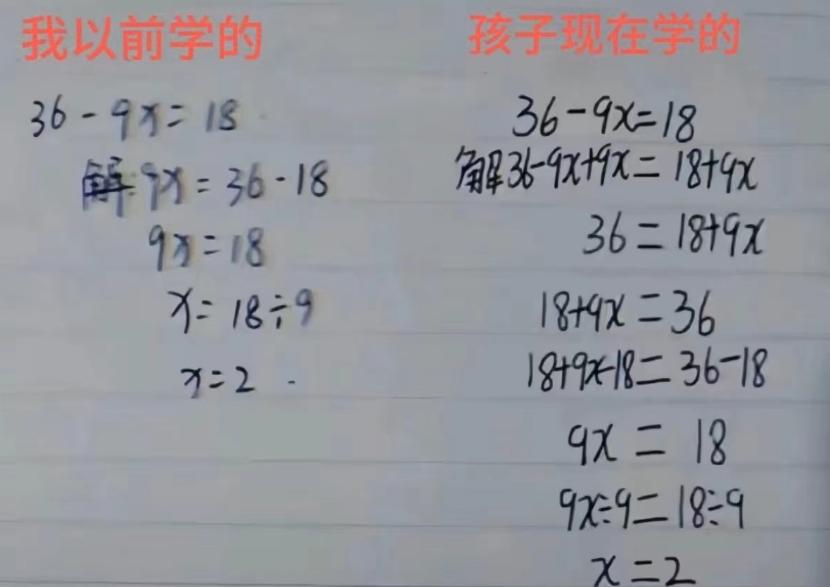 我以前学的
36-9x=18
解:9x=36-18
9x=18
x=18÷9
x=2
孩子现在学的
36-9x=18
解36-9x+9x=18+9x
36=18+9x
18+9x=36
18+9x-18=36-18
9x=18
9x÷9=18÷9
x=2